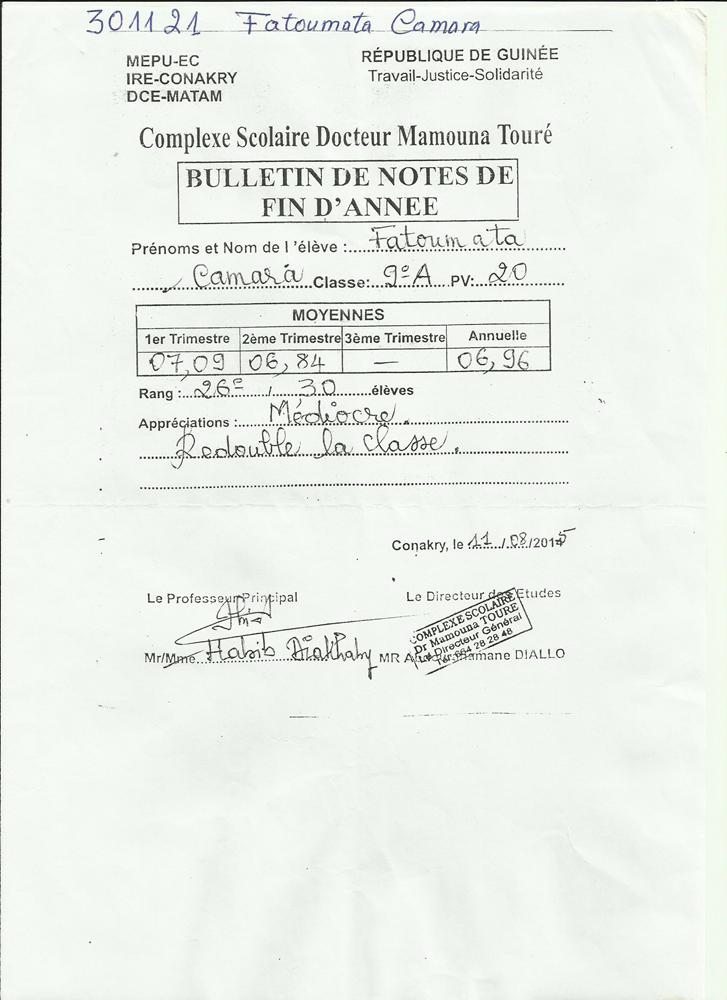 301121 Fatoumata Camara
MEPU-EC
IRE-CONAKRY
DCE-MATAM
RÉPUBLIQUE DE GUINÉE
Travail-Justice-Solidarité
Complexe Scolaire Docteur Mamouna Touré
BULLETIN DE NOTES DE
FIN D'ANNEE
Prénoms et Nom de l'élève : Fatoumata
Camara Classe: 9e A PV: 20
MOYENNES
1er Trimestre 2ème Trimestre 3ème Trimestre Annuelle
07,09 06,84 — 06,96
Rang : 26e / 30 élèves
Appréciations : Médiocre.
Redouble la classe.
Conakry, le 11/08/2015
Le Professeur Principal
Le Directeur des Etudes
COMPLEXE SCOLAIRE
Dr Mamouna TOURE
Le Directeur Général
Mr/Mme Habib Diakhaby
MR DIALLO